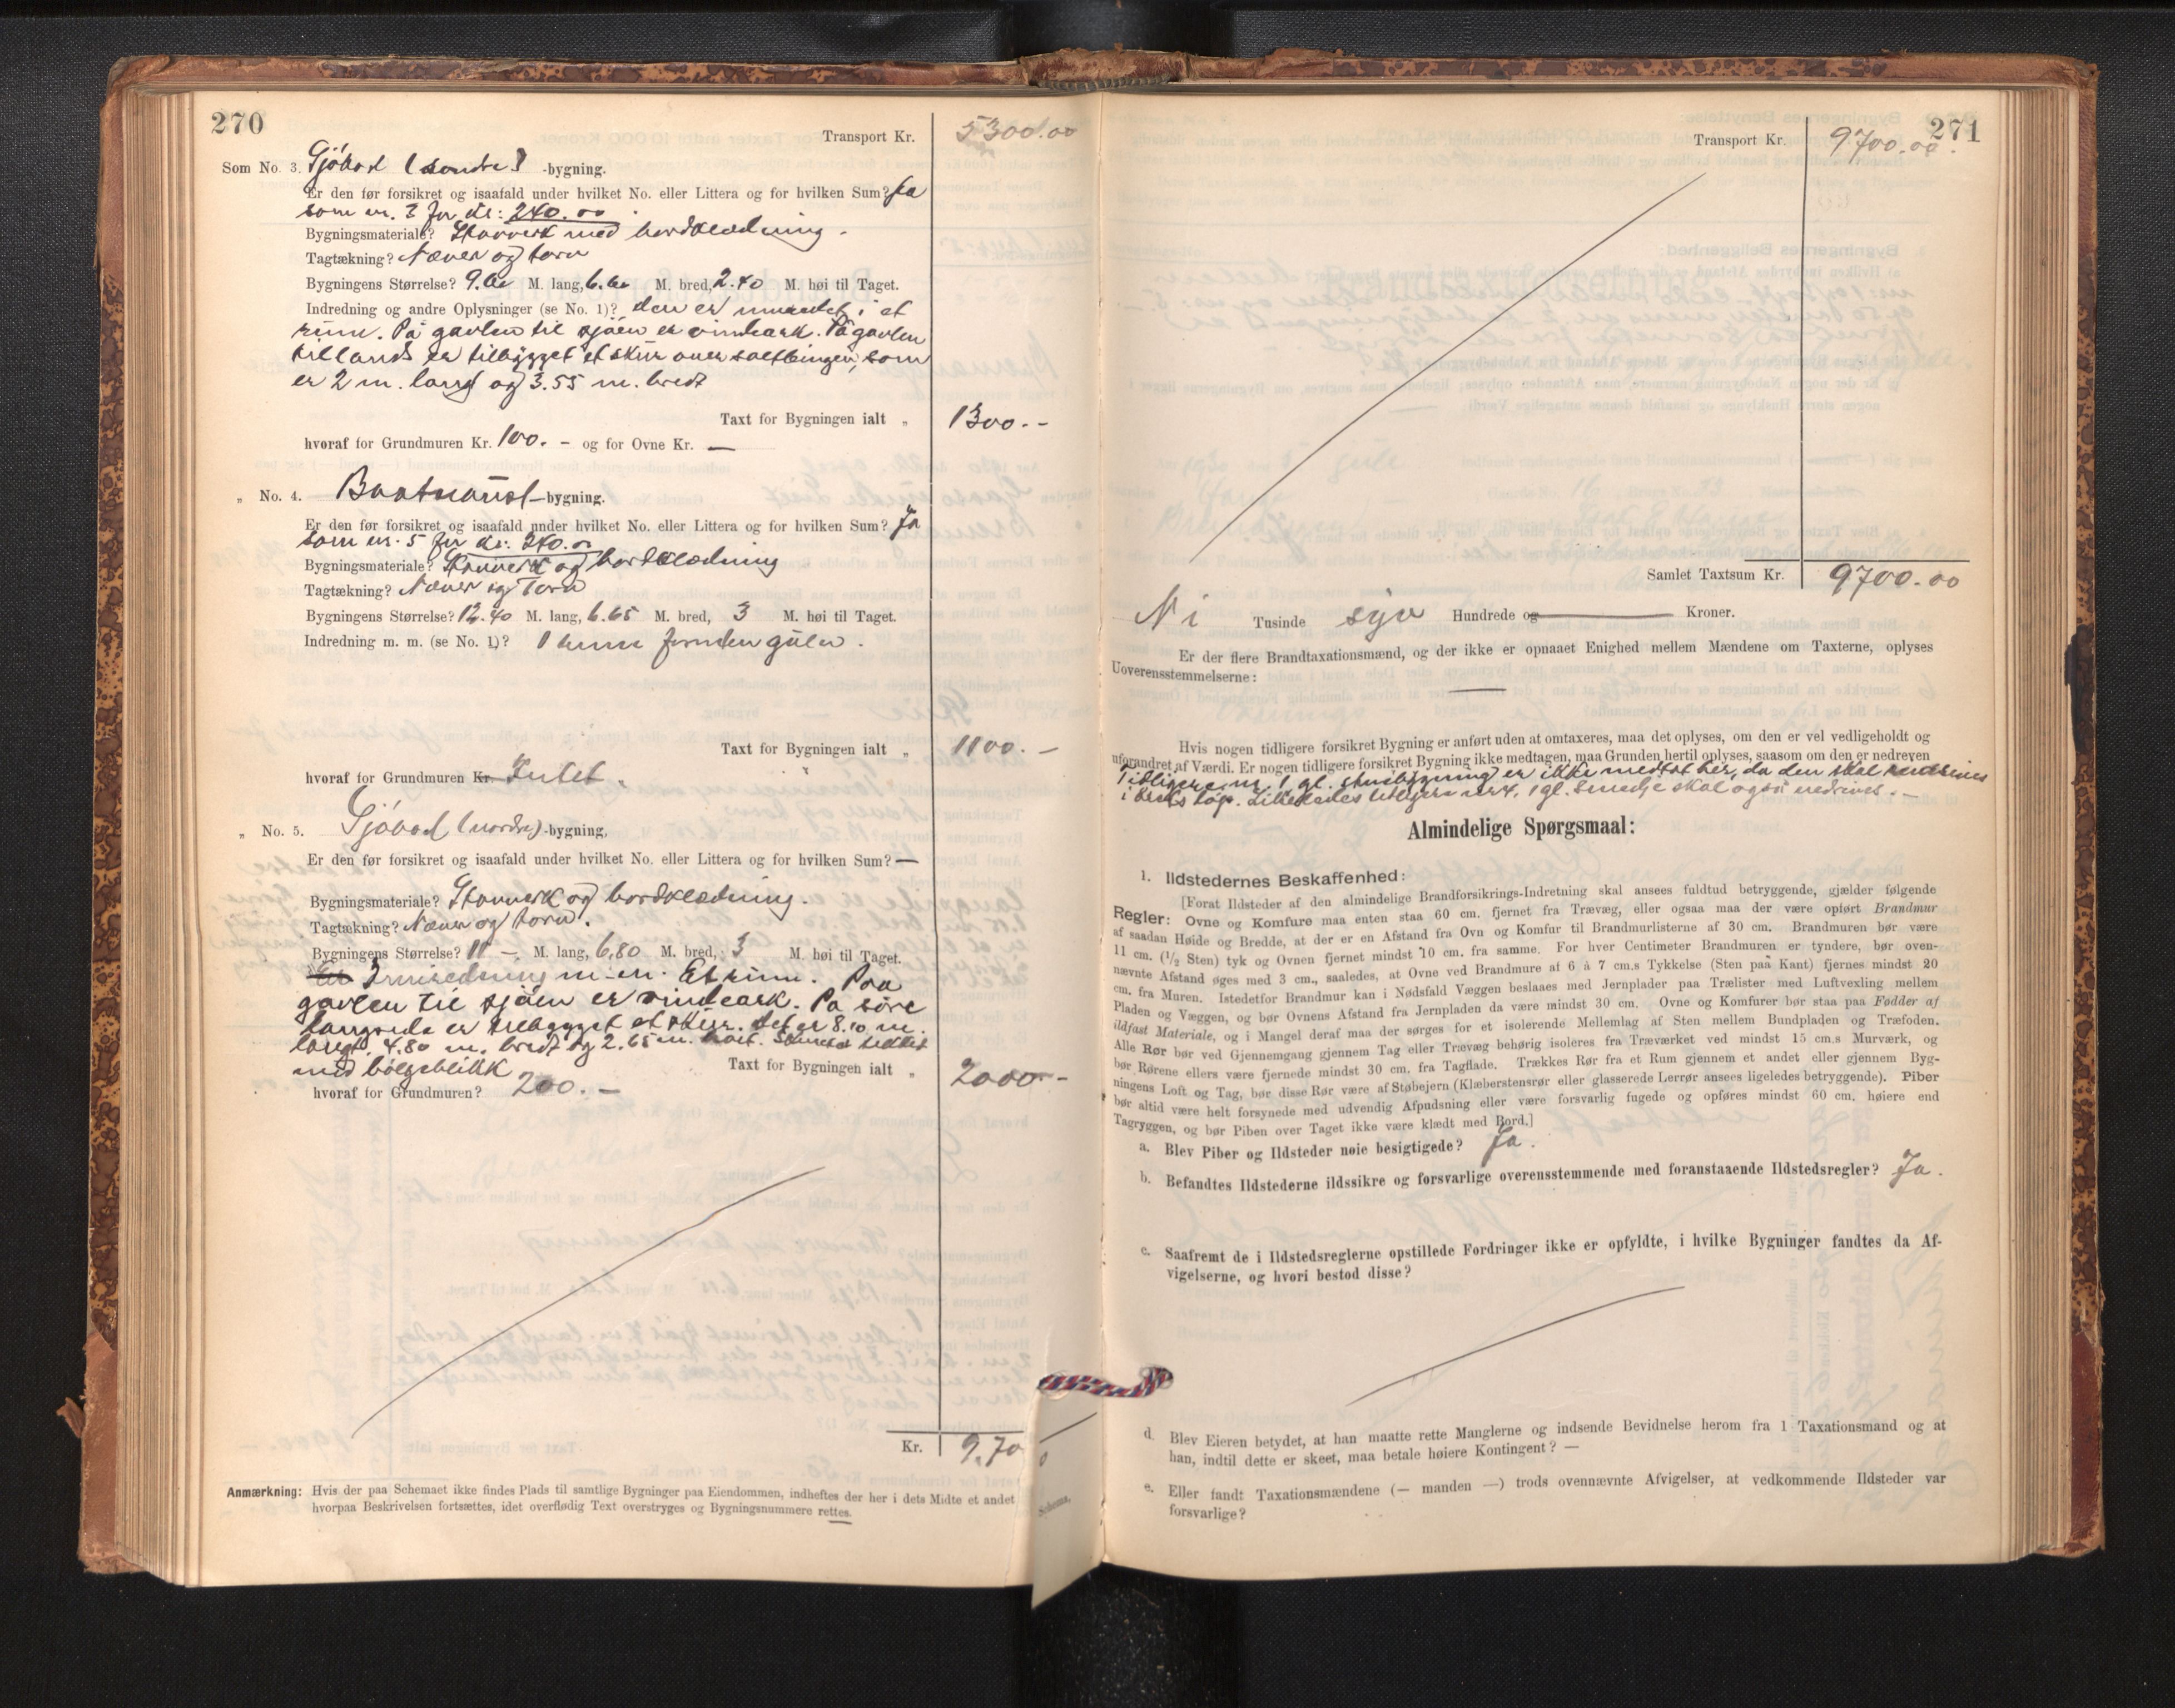 270
Transport Kr. 5300.00
Som No. 3. Sjöbod (söndre) -bygning.
Er den før forsikret og isaafald under hvilket No. eller Littera og for hvilken Sum? Ja
som nr. 3 for kr: 240.00
Bygningsmateriale? Stavverk med bordklædning.
Tagtækning? Næver og torv
Bygningens Størrelse? 9.60 M. lang, 6.60 M. bred, 2.40 M. høi til Taget.
Indredning og andre Oplysninger (se No. 1)? den er innredet i et
rum. På gavlen til sjöen er vindark. På gavlen
tillands er tilbygget et skur over saltbingen, som
er 2 m. langt og 3.55 m. bredt
Taxt for Bygningen ialt „ 1300.-
hvoraf for Grundmuren Kr. 100.- og for Ovne Kr. —
„ No. 4. Baatnaust -bygning.
Er den før forsikret og isaafald under hvilket No. eller Littera og for hvilken Sum? Ja
som nr. 5 for kr. 240.00
Bygningsmateriale? Stavverk og bordklædning
Tagtækning? Næver og Torv
Bygningens Størrelse? 12.40 M. lang, 6.65 M. bred, 3 M. høi til Taget.
Indredning m. m. (se No. 1)? 1 rum foruden gulv.
Taxt for Bygningen ialt „ 1100.-
hvoraf for Grundmuren Kr. Intet „
„ No. 5. Sjöbod (nordre) -bygning,
Er den før forsikret og isaafald under hvilket No. eller Littera og for hvilken Sum? —
Bygningsmateriale? Stavverk og bordklædning.
Tagtækning? Næver og torv.
Bygningens Størrelse? 11 — M. lang, 6,80 M. bred, 3 M. høi til Taget.
Innredning m. m. Et rum. Paa
gavlen til sjöen er vindark. På söre
langside er tilbygget et skur. det er 8.10 m.
langt, 4.80 m. bredt og 2.65 m. höit. Skuret tekket
med bölgeblikk
Taxt for Bygningen ialt „ 2000.-
hvoraf for Grundmuren? 200.-
Kr. 9.70
Anmærkning: Hvis der paa Schemaet ikke findes Plads til samtlige Bygninger paa Eiendommen, indheftes der her i dets Midte et andet
Schema,
hvorpaa Beskrivelsen fortsættes, idet overflødig Text overstryges og Bygningsnummere rettes.
271
Transport Kr. 9700.00.
Samlet Taxtsum Kr. 9700.00
Ni Tusinde syv Hundrede og Kroner.
Er der flere Brandtaxationsmænd, og der ikke er opnaaet Enighed mellem Mændene om Taxterne, oplyses
Uoverensstemmelserne: —
Hvis nogen tidligere forsikret Bygning er anført uden at omtaxeres, maa det oplyses, om den er vel vedligeholdt og
uforandret af Værdi. Er nogen tidligere forsikret Bygning ikke medtagen, maa Grunden hertil oplyses, saasom om den er nedreven
Tidligere nr. 1 gl. stuebygning er ikke medtat her, da den skal nedrives
i årets löp. Likeledes tidligere nr 4, 1 gl. smedje skal også nedrives. —
Almindelige Spørgsmaal:
1. Ildstedernes Beskaffenhed:
[Forat Ildsteder af den almindelige Brandforsikrings-Indretning skal ansees fuldtud betryggende, gjælder følgende
Regler: Ovne og Komfure maa enten staa 60 cm. fjernet fra Trævæg, eller ogsaa maa der være opført Brandmur
af saadan Høide og Bredde, at der er en Afstand fra Ovn og Komfur til Brandmurlisterne af 30 cm. Brandmuren bør være
11 cm. (1/2 Sten) tyk og Ovnen fjernet mindst 10 cm. fra samme. For hver Centimeter Brandmuren er tyndere, bør oven-
nævnte Afstand øges med 3 cm., saaledes, at Ovne ved Brandmure af 6 à 7 cm.s Tykkelse (Sten paa Kant) fjernes mindst 20
cm. fra Muren. Istedetfor Brandmur kan i Nødsfald Væggen beslaaes med Jernplader paa Trælister med Luftvexling mellem
Pladen og Væggen, og bør Ovnens Afstand fra Jernpladen da være mindst 30 cm. Ovne og Komfurer bør staa paa Fødder af
ildfast Materiale, og i Mangel deraf maa der sørges for et isolerende Mellemlag af Sten mellem Bundpladen og Træfoden.
Alle Rør bør ved Gjennemgang gjennem Tag eller Trævæg behørig isoleres fra Træværket ved mindst 15 cm.s Murværk, og
bør Rørene ellers være fjernede mindst 30 cm. fra Tagflade. Trækkes Rør fra et Rum gjennem et andet eller gjennem Byg-
ningens Loft og Tag, bør disse Rør være af Støbejern (Klæberstensrør eller glasserede Lerrør ansees ligeledes betryggende). Piber
bør altid være helt forsynede med udvendig Afpudsning eller være forsvarlig fugede og opføres mindst 60 cm. høiere end
Tagryggen, og bør Piben over Taget ikke være klædt med Bord.]
a. Blev Piber og Ildsteder nøie besigtigede? Ja.
b. Befandtes Ildstederne ildssikre og forsvarlige overensstemmende med foranstaaende Ildstedsregler? Ja.
c. Saafremt de i Ildstedsreglerne opstillede Fordringer ikke er opfyldte, i hvilke Bygninger fandtes da Af-
vigelserne, og hvori bestod disse?
d. Blev Eieren betydet, at han maatte rette Manglerne og indsende Bevidnelse herom fra 1 Taxationsmand og at
han, indtil dette er skeet, maa betale høiere Kontingent? —
e. Eller fandt Taxationsmændene (— manden —) trods ovennævnte Afvigelser, at vedkommende Ildsteder var
forsvarlige?